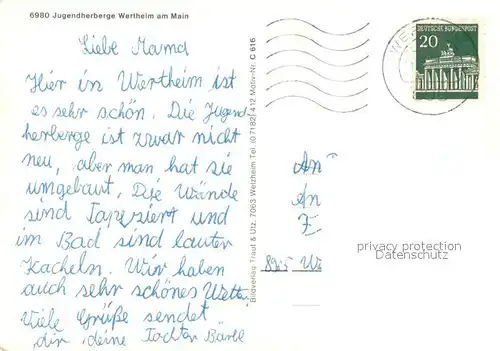 6980 Jugendherberge Wertheim am Main
Liebe Mama
Hier in Wertheim ist
es sehr schön. Die Jugend
herberge ist zwar nicht
neu, aber man hat sie
umgebaut. Die Wände
sind Tapeziert und
im Bad sind lauter
Kacheln. Wir haben
auch sehr schönes Wetter
Viele Grüße sendet
dir deine Tochter Bärbl
Bildverlag Traut & Utz, 7063 Welzheim Tel. (07182) 412 Motiv-Nr. C 616
DEUTSCHE BUNDESPOST
20
WE
An
An
Z
8905 We
privacy protection
Datenschutz